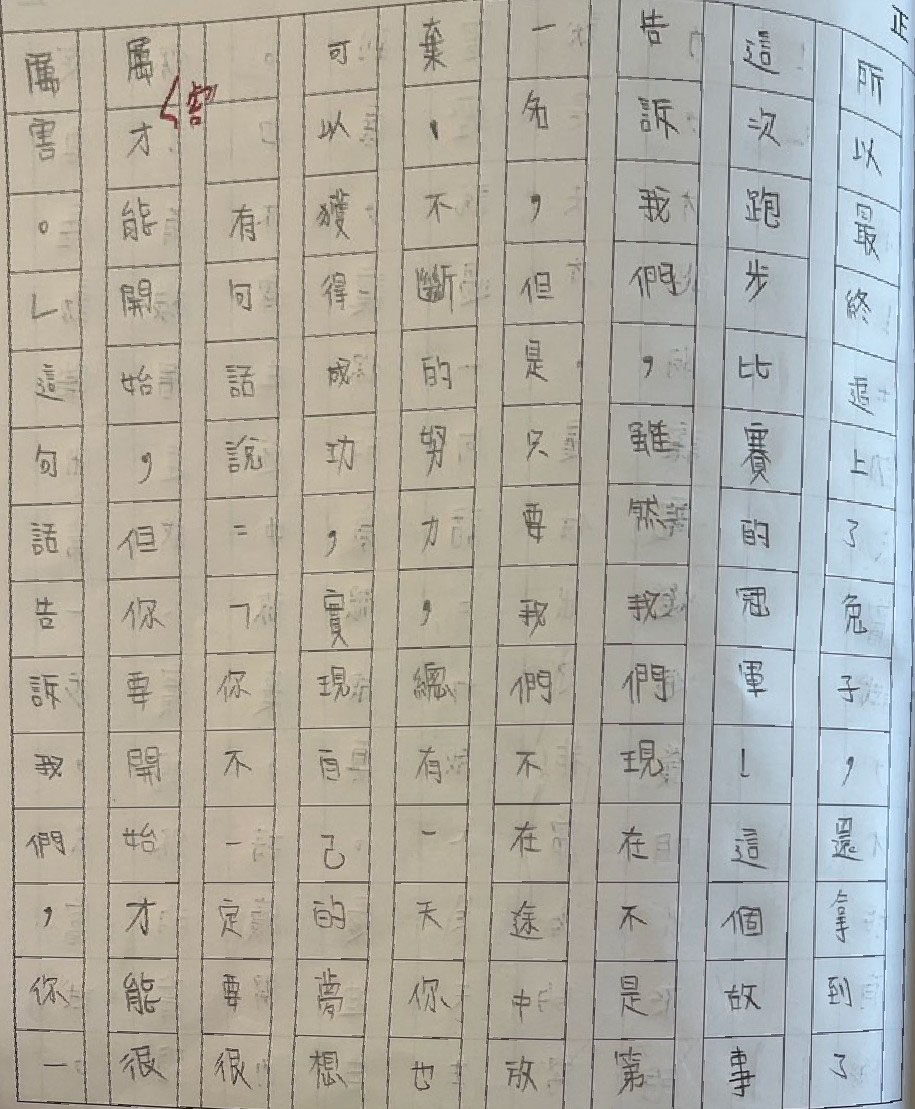 正
所以最終追上了兔子，還拿到了
這次跑步比賽的冠軍！這個故事
告訴我們，雖然我們現在不是第
一名，但是只要我們不在途中放
棄，不斷的努力，總有一天你也
可以獲得成功，實現自己的夢想
。有句話說：「你不一定要很
厲害才能開始，但你要開始才能很
厲害。」這句話告訴我們，你一